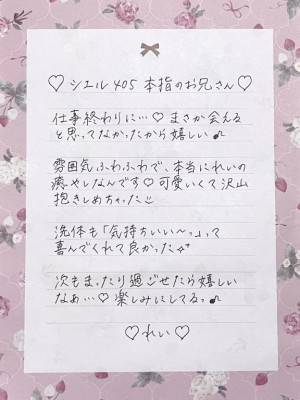 ♡ シエル 405 本指のお兄さん ♡
仕事終わりに…♡ まさか会える
と思ってなかったから嬉しい♪
雰囲気ふわふわで、本当にれいの
癒やしなんです♡ 可愛いくて沢山
抱きしめちゃった
洗体も「気持ちいい〜っ」って
喜んでくれて良かった
次もまったり過ごせたら嬉しい
なぁ…♡ 楽しみにしてるっ♪
♡れい♡